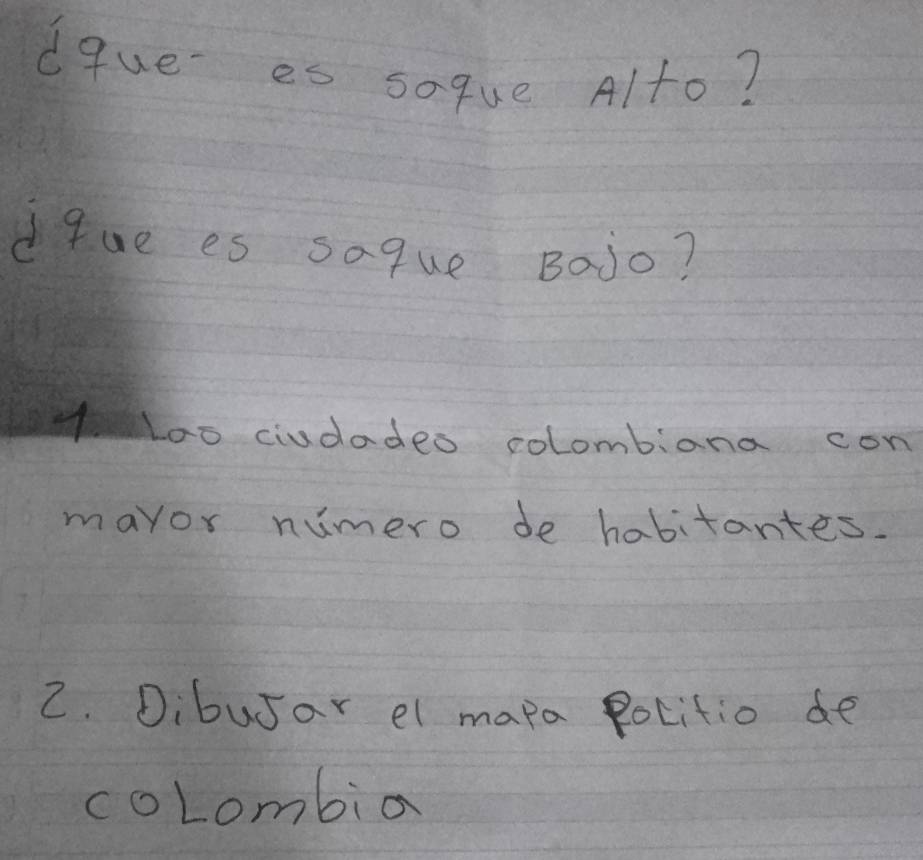 ¿que es saque Alto?
¿que es saque Bajo?
1. Las ciudades colombiana con
mayor número de habitantes.
2. Dibujar el mapa Politio de
coLombia